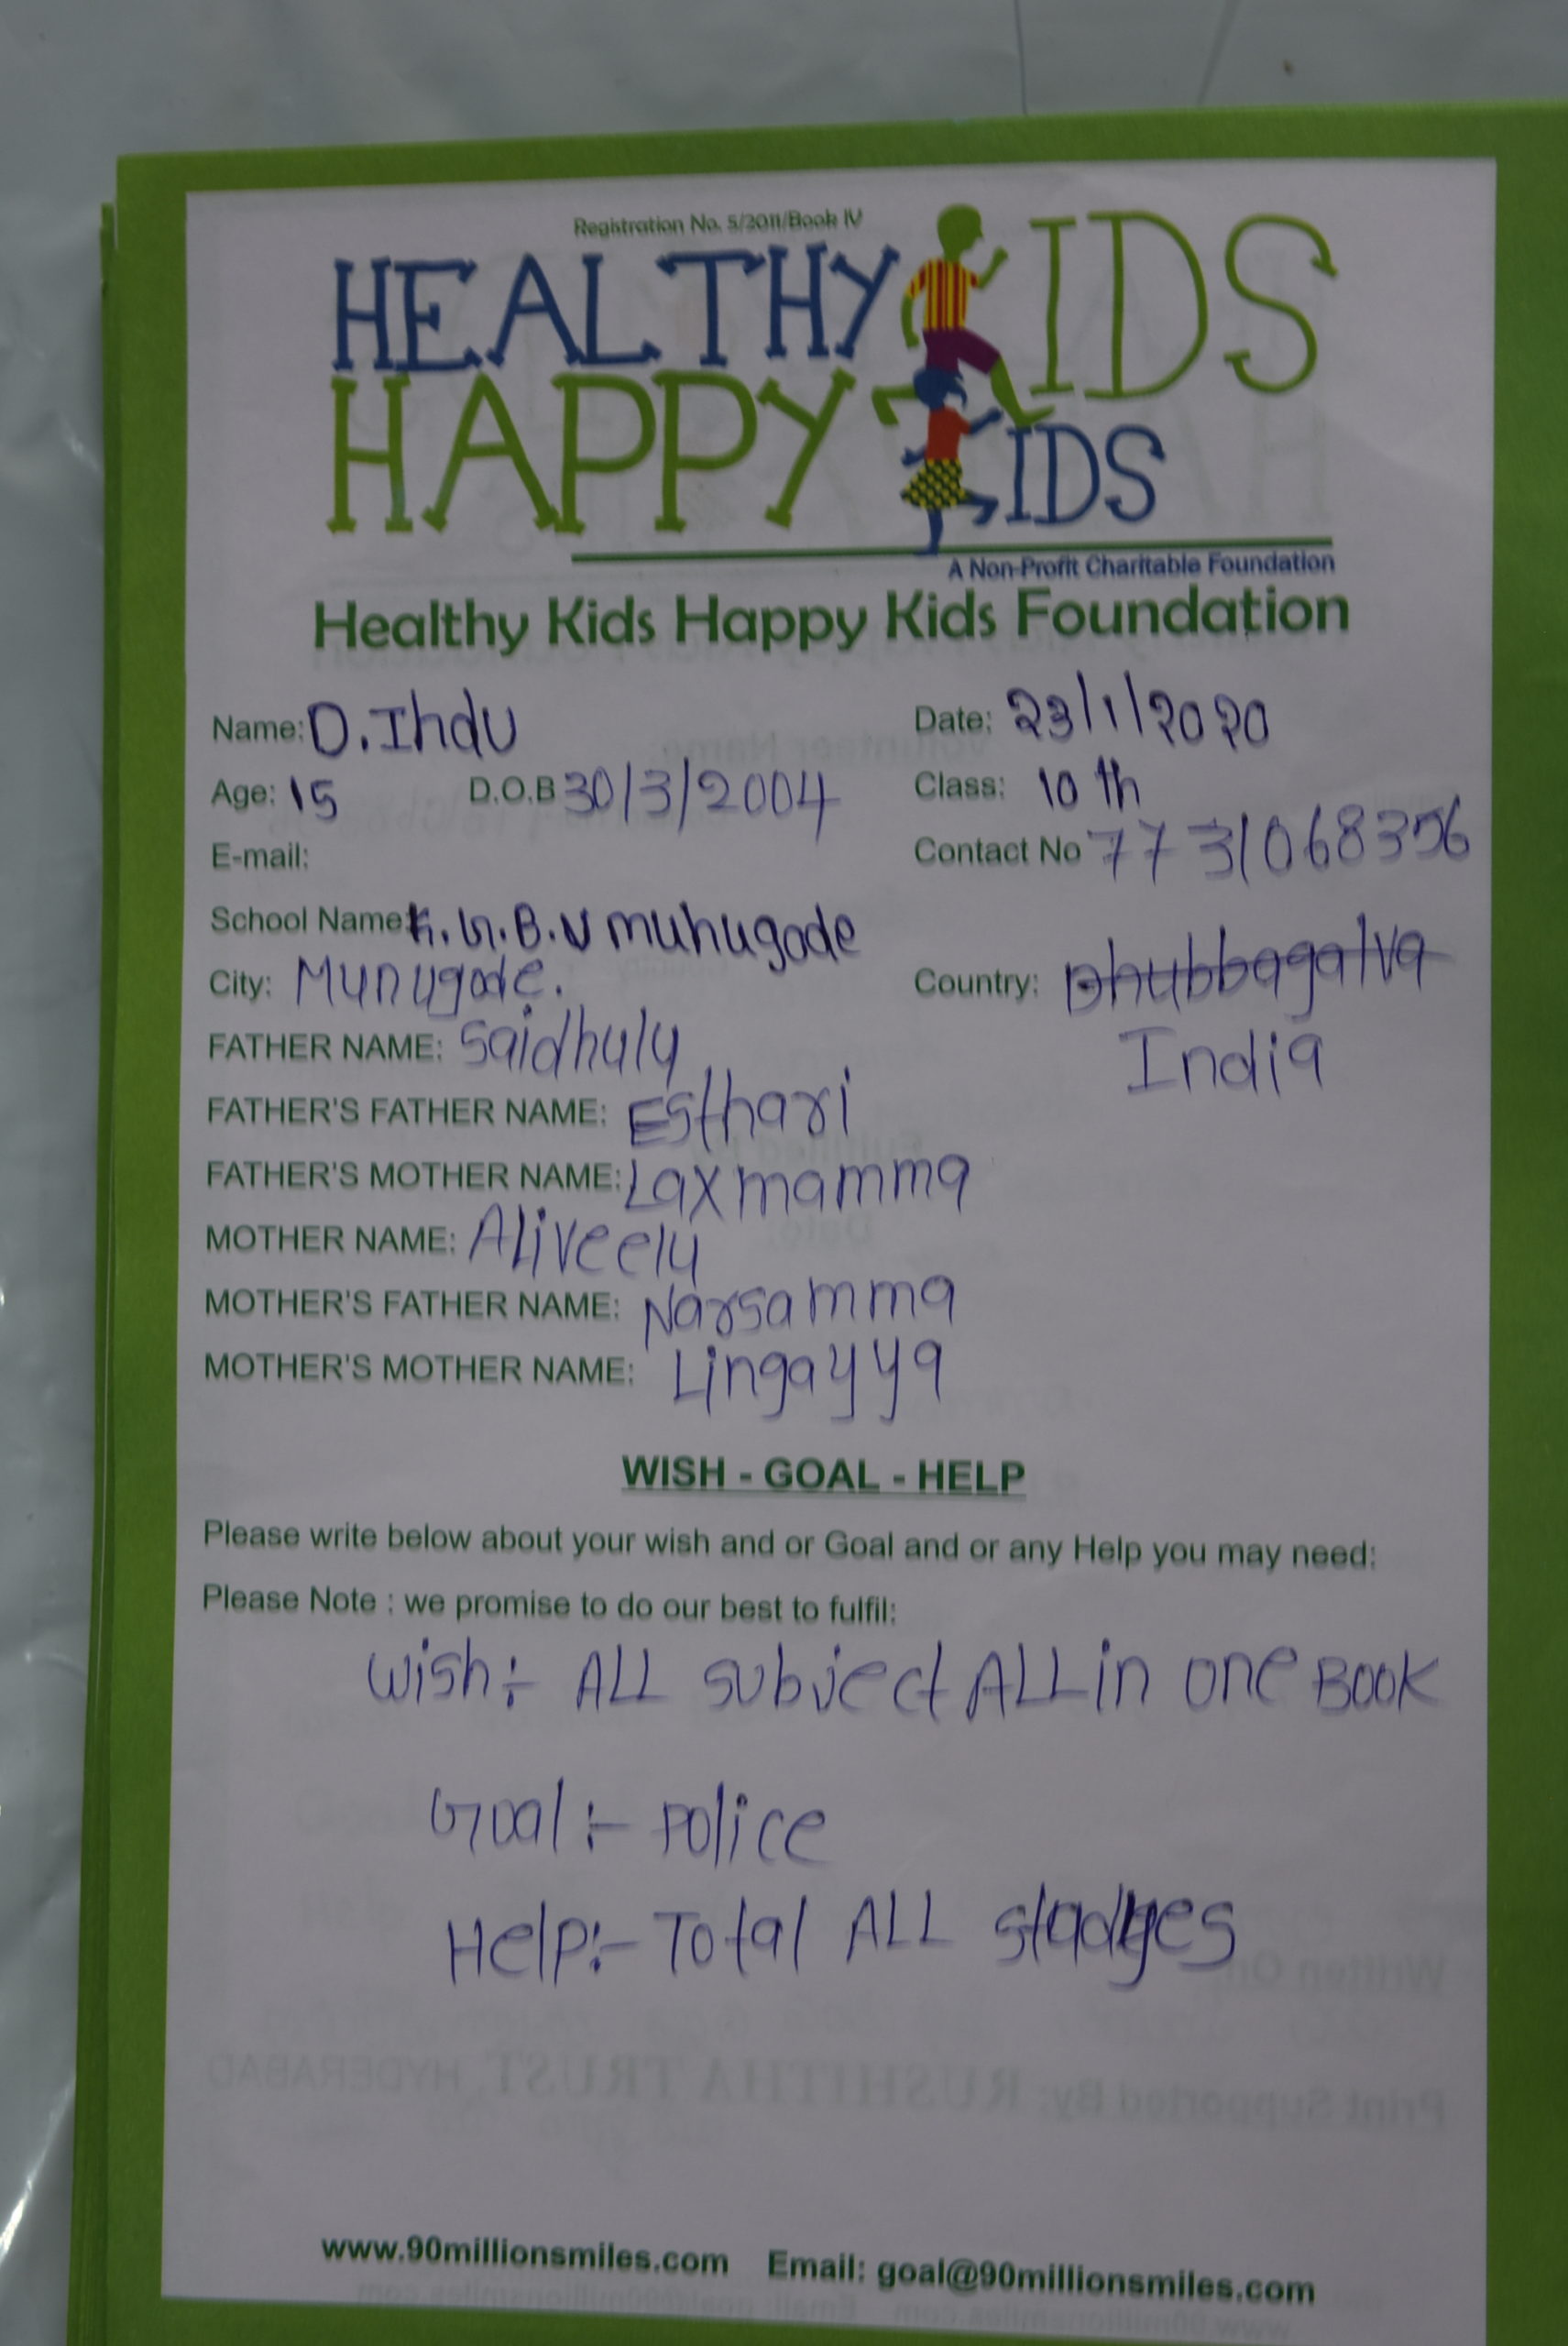 Registration No. 5/2011/Book IV
HEALTHY KIDS
HAPPY KIDS
A Non-Profit Charitable Foundation
Healthy Kids Happy Kids Foundation
Name: D.Indu Date: 23/1/2020
Age: 15 D.O.B 30/3/2004 Class: 10 th
E-mail: Contact No 7731068356
School Name: K.G.B.V munugode
City: Munugode. Country: Dhubbagalva
India
FATHER NAME: Saidhulu
FATHER'S FATHER NAME: Esthari
FATHER'S MOTHER NAME: Laxmamma
MOTHER NAME: Aliveelu
MOTHER'S FATHER NAME: Narsamma
MOTHER'S MOTHER NAME: Lingayya
WISH - GOAL - HELP
Please write below about your wish and or Goal and or any Help you may need:
Please Note : we promise to do our best to fulfil:
Wish:- ALL subject ALL in one BOOK
Goal:- police
Help:- Total ALL
www.90millionsmiles.com Email: goal@90millionsmiles.com